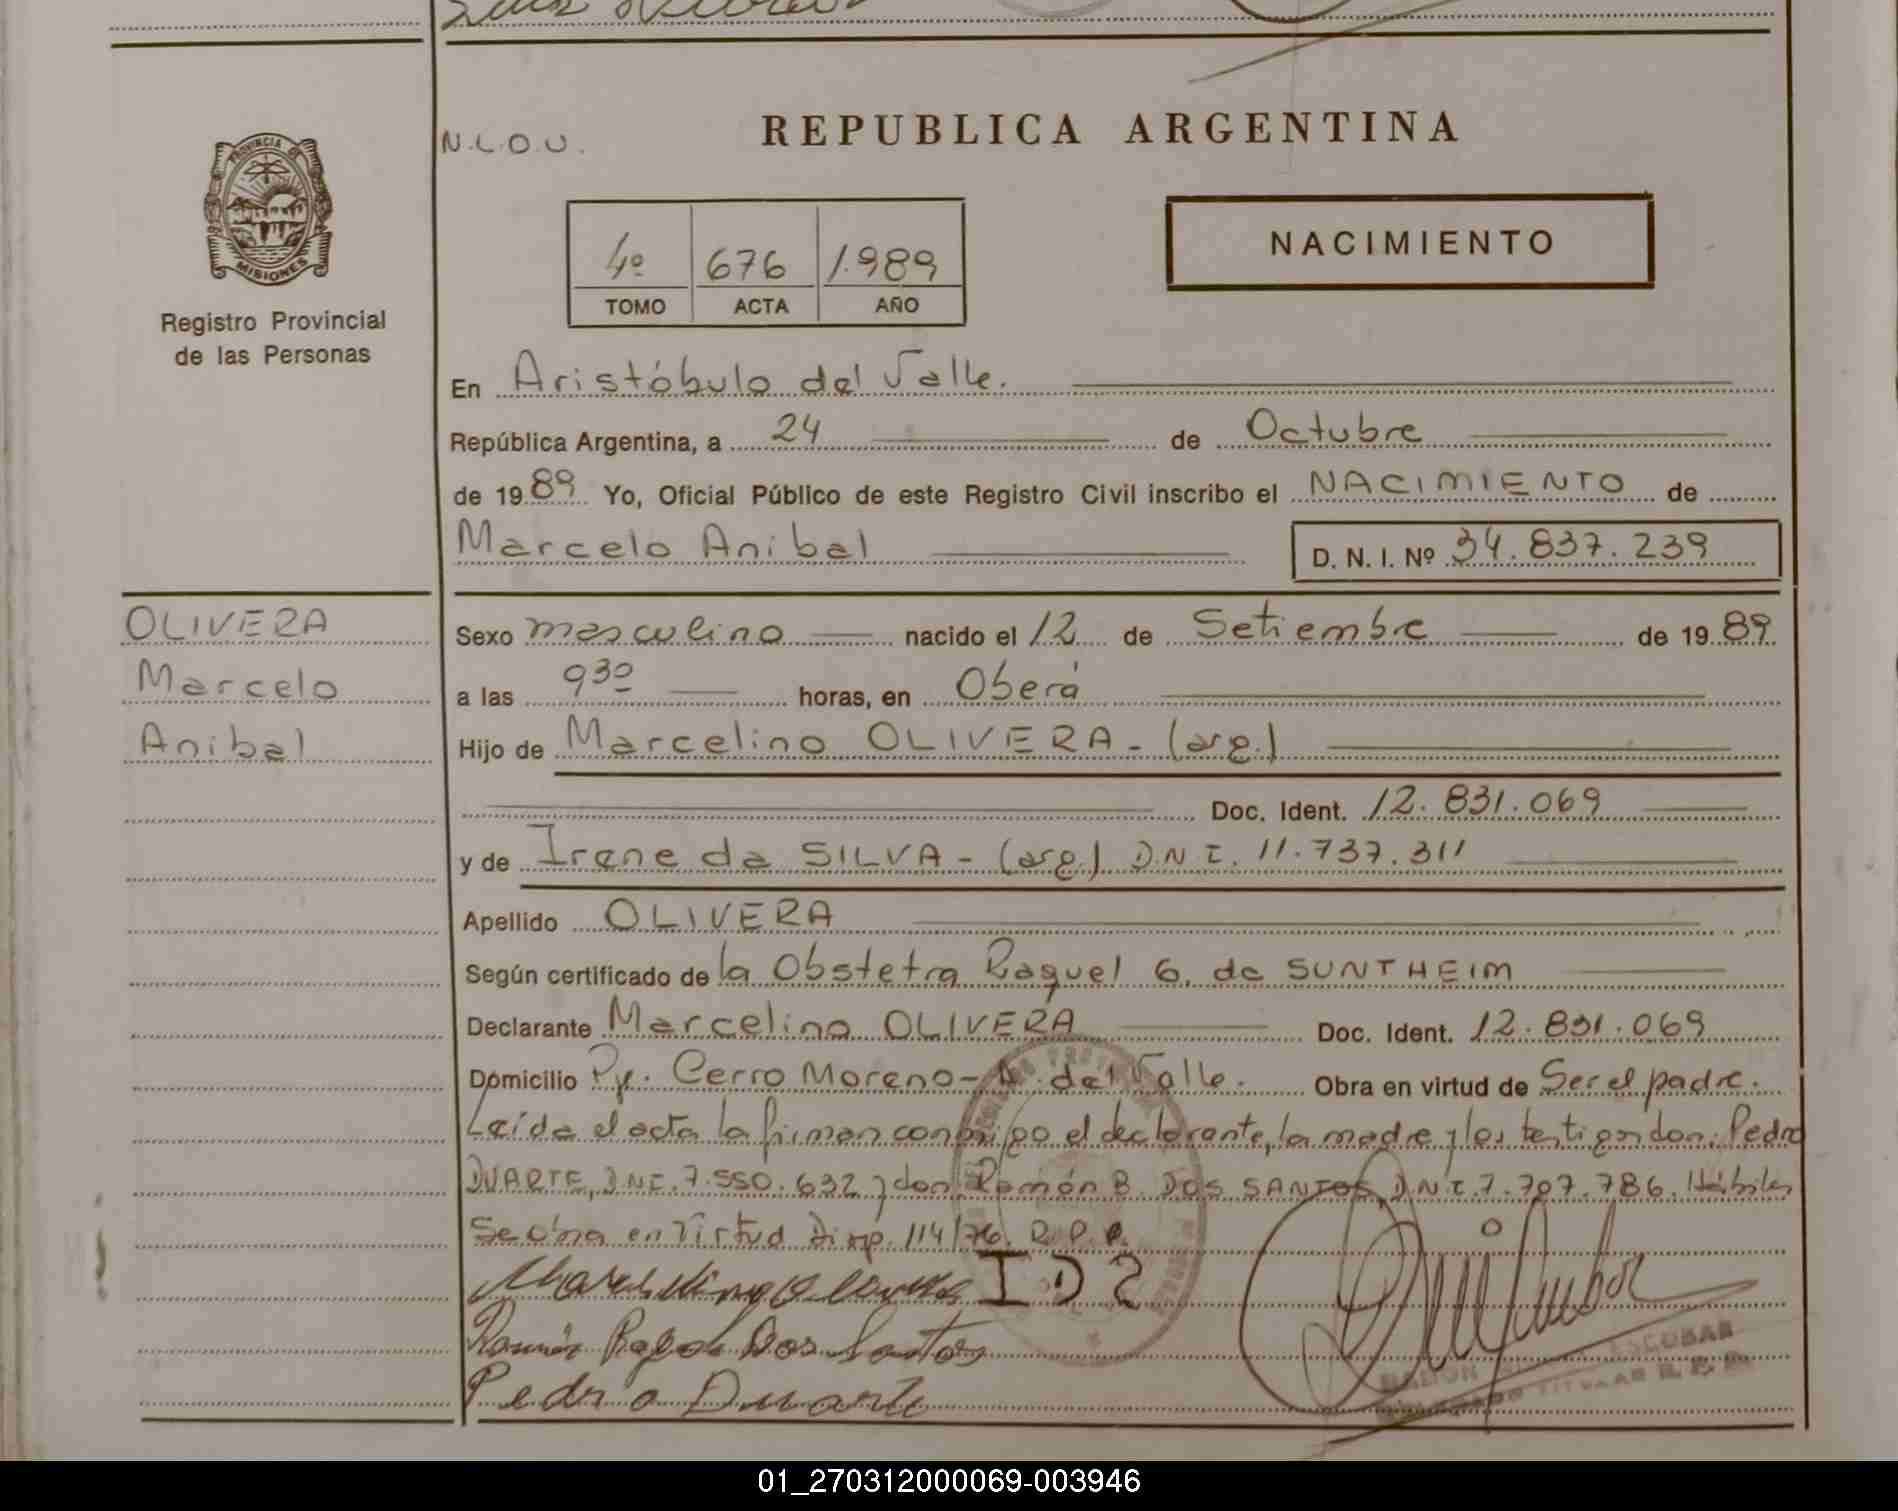 REPUBLICA ARGENTINA
N.L.O.U.
PROVINCIA DE
MISIONES
Registro Provincial
de las Personas
NACIMIENTO
4º 676 1.989
TOMO ACTA AÑO
En Aristóbulo del Valle.
República Argentina, a 24 de Octubre
de 1989 Yo, Oficial Público de este Registro Civil inscribo el NACIMIENTO de
Marcelo Anibal D. N. I. Nº 34.837.239
OLIVERA
Marcelo
Anibal
Sexo masculino nacido el 12 de Setiembre de 1989
a las 9³⁰ horas, en Oberá
Hijo de Marcelino OLIVERA - (arg.)
Doc. Ident. 12.831.069
y de Irene da SILVA - (arg.) D.N.I. 11.737.311
Apellido OLIVERA
Según certificado de la Obstetra Raquel G. de SUNTHEIM
Declarante Marcelino OLIVERA Doc. Ident. 12.831.069
Domicilio Pje. Cerro Moreno - A. del Valle. Obra en virtud de Ser el padre.
Leída el acta la firman conmigo el declarante, la madre y los testigos don: Pedro
DUARTE, D.N.I. 7.550.632 y don Ramón B. DOS SANTOS, D.N.I. 7.707.786. Hábiles
Se obra en Virtud Disp. 114/76. R.P.P.
ID2
Ramón Dos Santos
Pedro Duarte
ESCOBAR
TITULAR R.P.P.
01_270312000069-003946